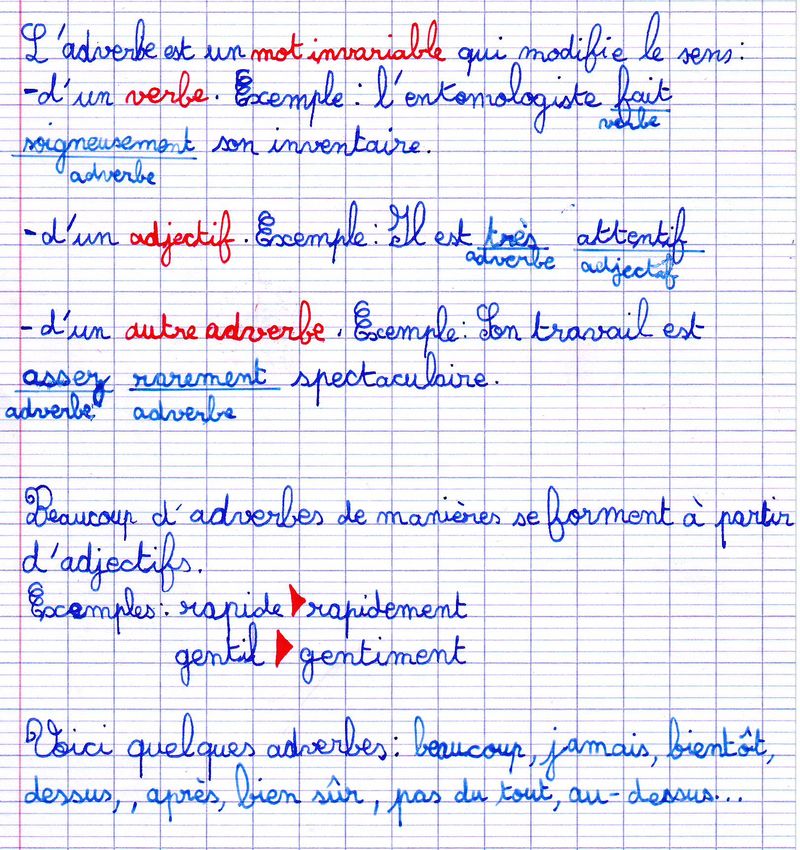 L'adverbe est un mot invariable qui modifie le sens :
-d'un verbe. Exemple : l'entomologiste fait
verbe
soigneusement son inventaire.
adverbe
-d'un adjectif. Exemple : Il est très attentif
adverbe adjectif
-d'un autre adverbe. Exemple : Son travail est
assez rarement spectaculaire.
adverbe adverbe
Beaucoup d'adverbes de manières se forment à partir
d'adjectifs.
Exemples : rapide ▶ rapidement
gentil ▶ gentiment
Voici quelques adverbes : beaucoup, jamais, bientôt,
dessus, , après, bien sûr, pas du tout, au-dessus...